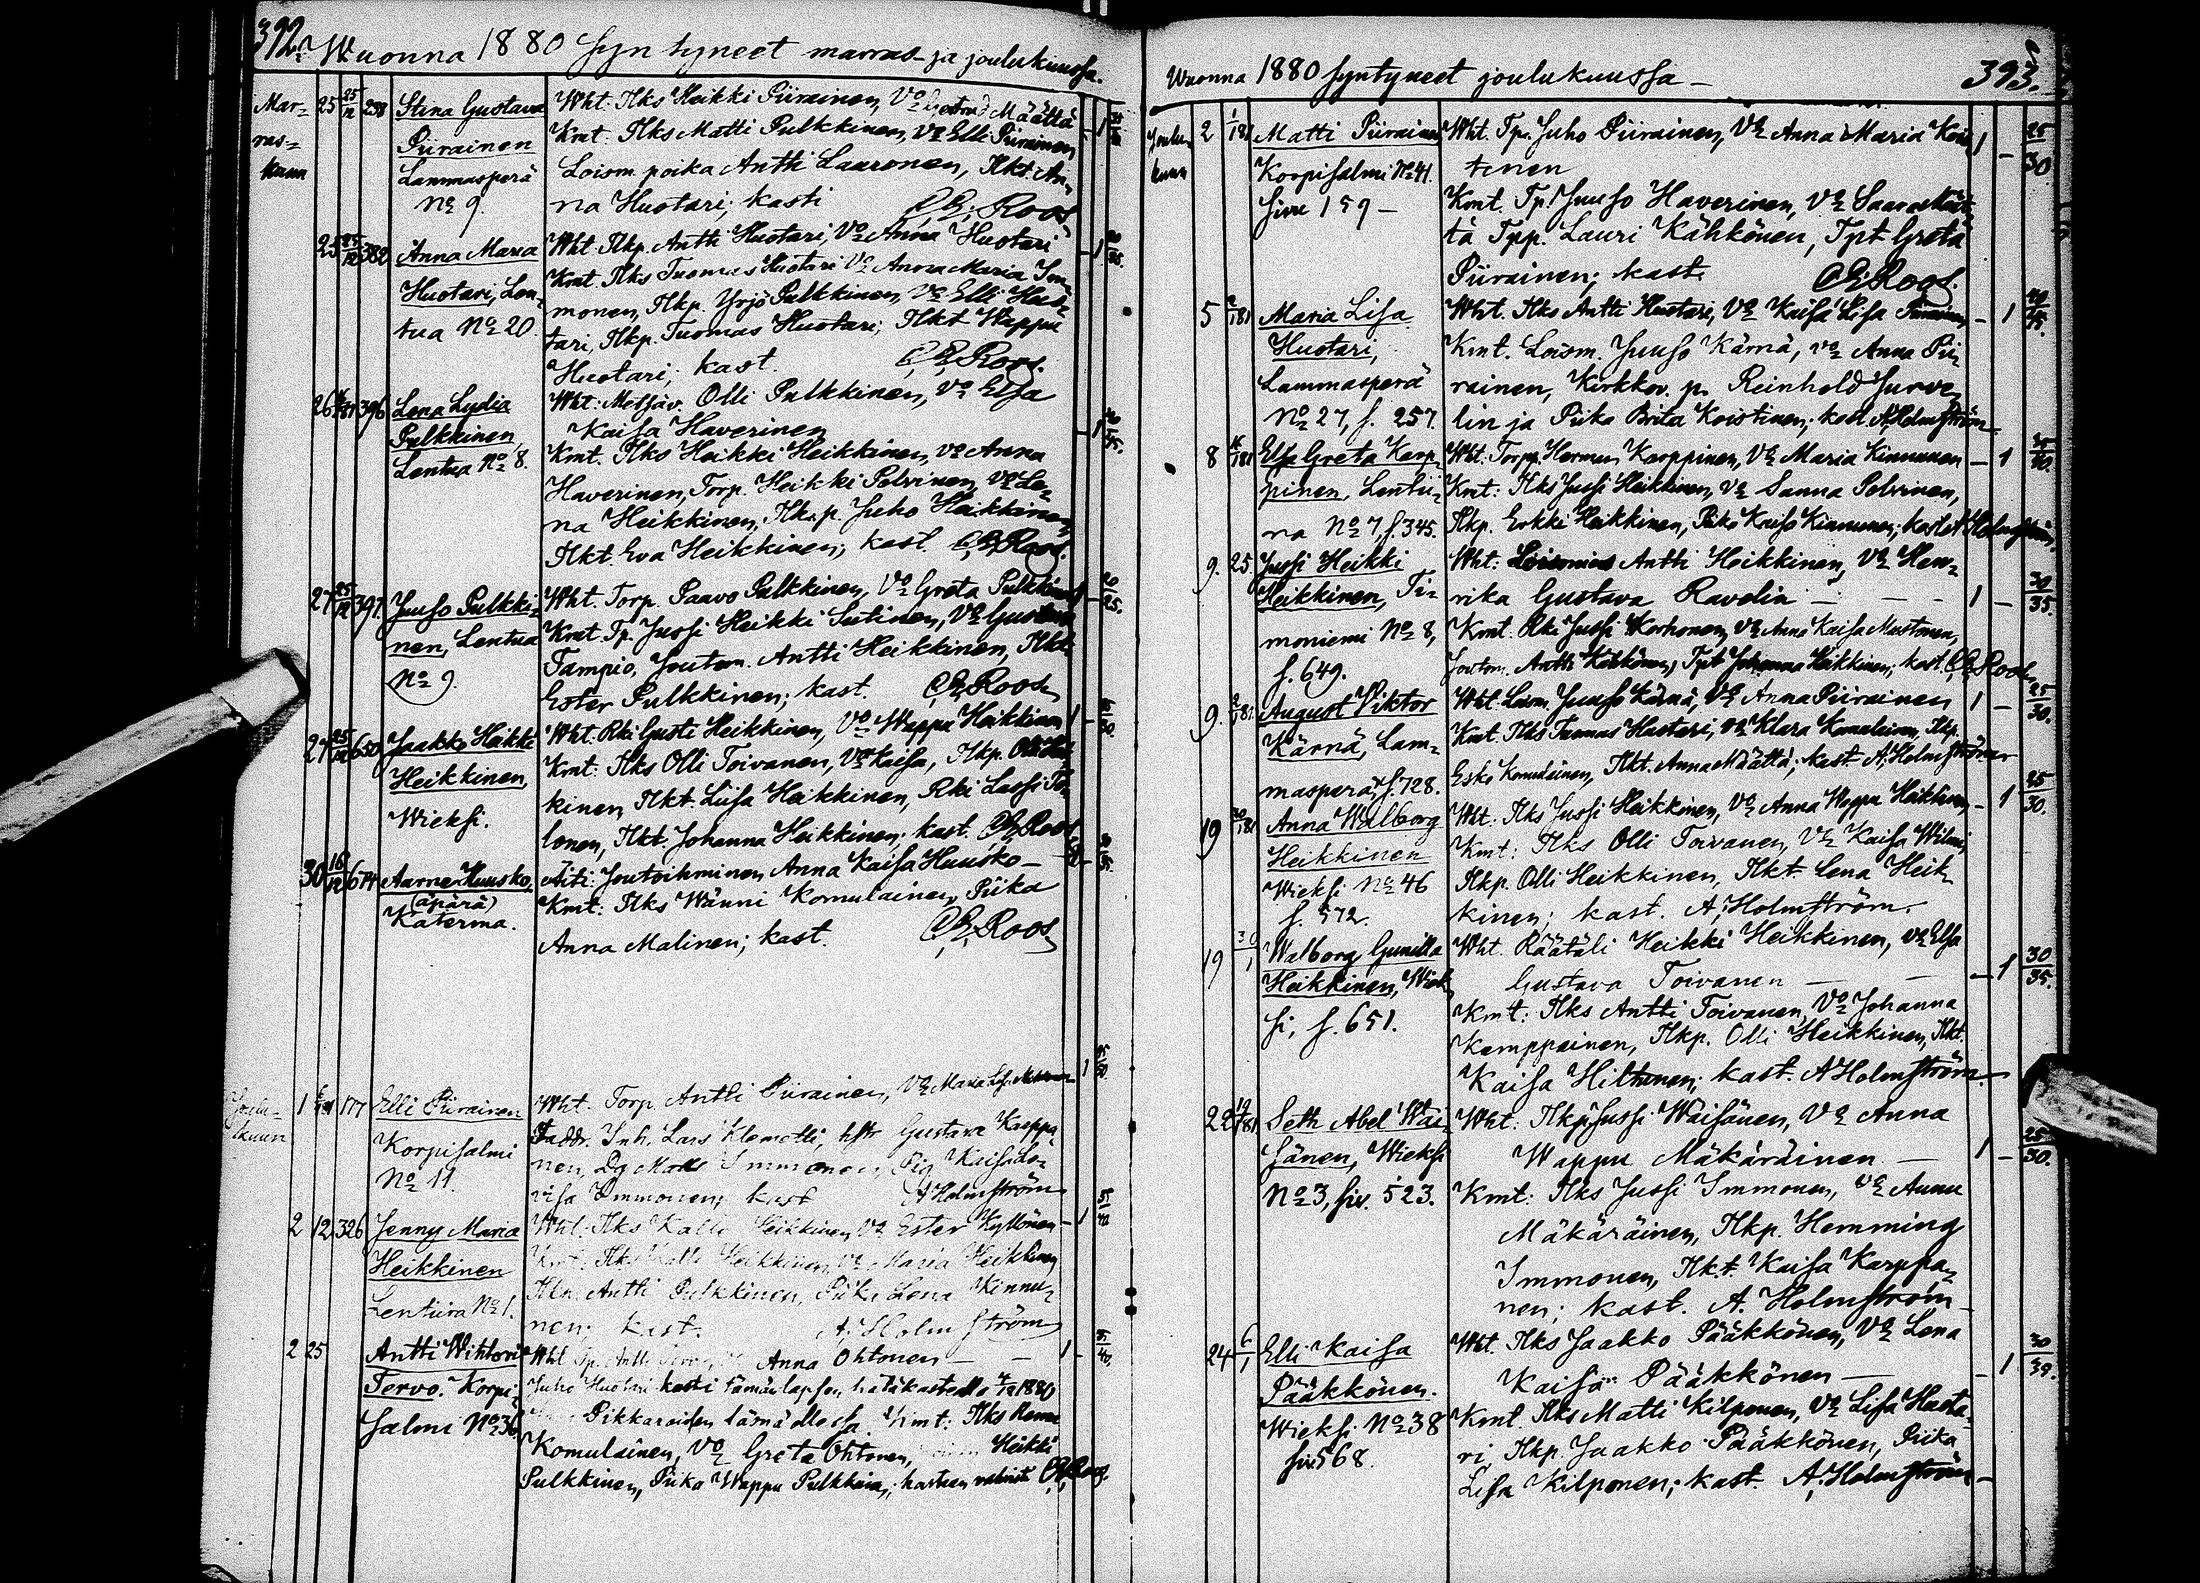 392. Wuonna 1880 syntyneet marras- ja joulukuussa.
Mar-
ras-
kuun
25 25/12 238 Stina Gustava
Piirainen
Lammasperä
No 9.
Wht: Ilks Heikki Piirainen, Vo Määttä
Kmt: Ilks Matti Pulkkinen, Vo Elli Piirainen
Loism. poika Antti Laaronen, Ilkt. An-
na Huotari; kasti C,R, Roos
25 25/12 382 Anna Maria
Huotari, Len-
tua No 20.
Wht. Ilkp. Antti Huotari, Vo Anna Huotari
Kmt. Ilks Tuomas Huotari Vo Anna Maria Im-
monen, Ilkp. Yrjö Pulkkinen, Vo Elli Huo-
tari, Ilkp. Tuomas Huotari, Ilkt Wappu
Huotari; kast. C,R, Roos.
26 396 Lena Lydia
Pulkkinen,
Lentua No 8.
Wht: Olli Pulkkinen, Vo Elsa
Kaisa Haverinen
Kmt. Ilks Heikki Heikkinen, Vo Anna
Haverinen, Torp. Heikki Polvinen, Vo Le-
na Heikkinen, Ilks.p. Juho Heikkinen,
Ilkt. Eva Heikkinen; kast. C,R, Roos.
27 25/12 397 Juuso Pulkki-
nen, Lentua
No 9.
Wht. Torp. Paavo Pulkkinen, Vo Greta Pulkkinen
Kmt. Tp. Jussi Heikki Sutinen, Vo Gustava
Tampio, Joutom. Antti Heikkinen, Ilkt.
Ester Pulkkinen; kast. C,R, Roos
27 25/12 650 Jaakko Heikki
Heikkinen,
Wieksi.
Wht. Rki Gusti Heikkinen, Vo Wappu Heikkinen
Kmt: Ilks Olli Toivanen, Vo Kaisa, Ilkp. Olli Heik-
kinen, Ilkt. Liisa Heikkinen, Rki Lassi To-
lonen, Ilkt. Johanna Heikkinen; kast. C,R, Roos
30 16/12 674 Aarne Huusko,
(äpärä)
Katerma.
Äiti: Joutoihminen Anna Kaisa Huusko -
Kmt: Ilks Wänni Komulainen, Piika
Anna Malinen; kast. C,R, Roos
Joulu-
kuun
1 177 Elli Piirainen
Korpisalmi
No 11.
Wht. Torp. Antti Piirainen, Vo Maria
Faddr. Inh. Lars Klemetti, hstr Gustava Karppi-
nen, Dg Mats Immonen, Pig. Kaisa Lo-
visa Immonen; kast A Holmström
2 12 326 Jenny Maria
Heikkinen
Lentiira No 1.
Wht. Ilks Kalle Heikkinen, Vo Ester Kyllönen
Kmt: Ilks Kalle Heikkinen, Vo Maria Heikkinen
Antti Pulkkinen, Piika Lena Kinnu-
nen; kast. A, Holmström
2 25 Antti Wihtori
Tervo. Korpi-
salmi No 36
Wht Antti Tervo, Anna Ohtonen
Juho Huotari kasti tämän lapsen hätäkasteella 4/12 1880
Pikkaraiden Kmt: Ilks
Komulainen, Vo Greta Ohtonen, Heikki
Pulkkinen, Piika Wappu Pulkkinen; kasteen vahvisti C,R, Roos.
Wuonna 1880 syntyneet joulukuussa - 393.
Joulu-
kuun
2 1/181 Matti Piirainen
Korpisalmi No 41.
sivu 159 -
Wht. Tp. Juho Piirainen, Vo Anna Maria Kois-
tinen
Kmt. Tp. Juuso Haverinen, Vo Saara Määt-
tä Tpp. Lauri Kähkönen, Tpt Greta
Piirainen; kast. C,R, Roos.
25/30
5 Maria Lisa
Huotari,
Lammasperä
No 27, s. 257.
Wht. Ilks Antti Huotari, Vo Kaisa Lisa Piirainen
Kmt. Loism. Juuso Kärnä, Vo Anna Pii-
rainen, Kirkkov. p. Reinhold Jurve-
lin ja Piika Brita Koistinen; kast. A, Holmström
8 Elsa Greta Karp-
pinen, Lentii-
ra No 7, s. 345.
Wht: Torpp. Herman Karppinen, Vo Maria Kinnunen
Kmt: Ilks Jussi Heikkinen, Vo Sanna Polvinen,
Ilkp. Erkki Heikkinen, Piika Kaisa Kinnunen; kast A Holmström.
9. 25 Jussi Heikki
Heikkinen, Ti-
moniemi No 8,
s. 649.
Wht: Loismies Antti Heikkinen, Vo Hen-
rika Gustava Ravelin
Kmt. Rki Jussi Korhonen, Vo Anna Kaisa Mustonen,
Joutom. Antti Kähkönen, Tpt Johanna Heikkinen; kast. C,R, Roos
30/35.
9. August Viktor
Kärnä, Lam-
masperä, s. 728.
Wht. Loism. Juuso Kärnä, Vo Anna Piirainen
Kmt. Ilks Tuomas Huotari, Vo Klara Komulainen, Ilkp.
Esko Komulainen, Ilkt. Anna Määttä; kast A, Holmström
25/30.
19 Anna Walborg
Heikkinen
Wieksi No 46
s. 572.
Wht: Ilks Jussi Heikkinen, Vo Anna Wappu Heikkinen,
Kmt: Ilks Olli Toivanen, Vo Kaisa Wilmi,
Ilkp. Olli Heikkinen, Ilkt. Lena Heik-
kinen; kast. A, Holmström.
25/30.
19 30/1 Walborg Gunilla
Heikkinen, Wiek-
si, s. 651.
Wht. Räätäli Heikki Heikkinen, Vo Elsa
Gustava Toivanen
Kmt: Ilks Antti Toivanen, Vo Johanna
Kemppainen, Ilkp. Olli Heikkinen, Ilkt.
Kaisa Hiltunen; kast. A Holmström.
30/35.
22 Seth Abel Wai-
sänen, Wieksi
No 3, siv. 523.
Wht: Ilkp Jussi Waisänen, Vo Anna
Wappu Mäkäräinen
Kmt: Ilks Jussi Immonen, Vo Anna
Mäkäräinen, Ilkp. Hemming
Immonen, Ilkt. Kaisa Karppi-
nen; kast. A. Holmström
25/30.
24 6/1 Elli Kaisa
Pääkkönen.
Wieksi No 38
siv. 568.
Wht. Ilks Jaakko Pääkkönen, Vo Lena
Kaisa Pääkkönen
Kmt. Ilks Matti Kilponen, Vo Lisa Huota-
ri, Ilkp. Jaakko Pääkkönen, Piika
Lisa Kilponen; kast. A, Holmström